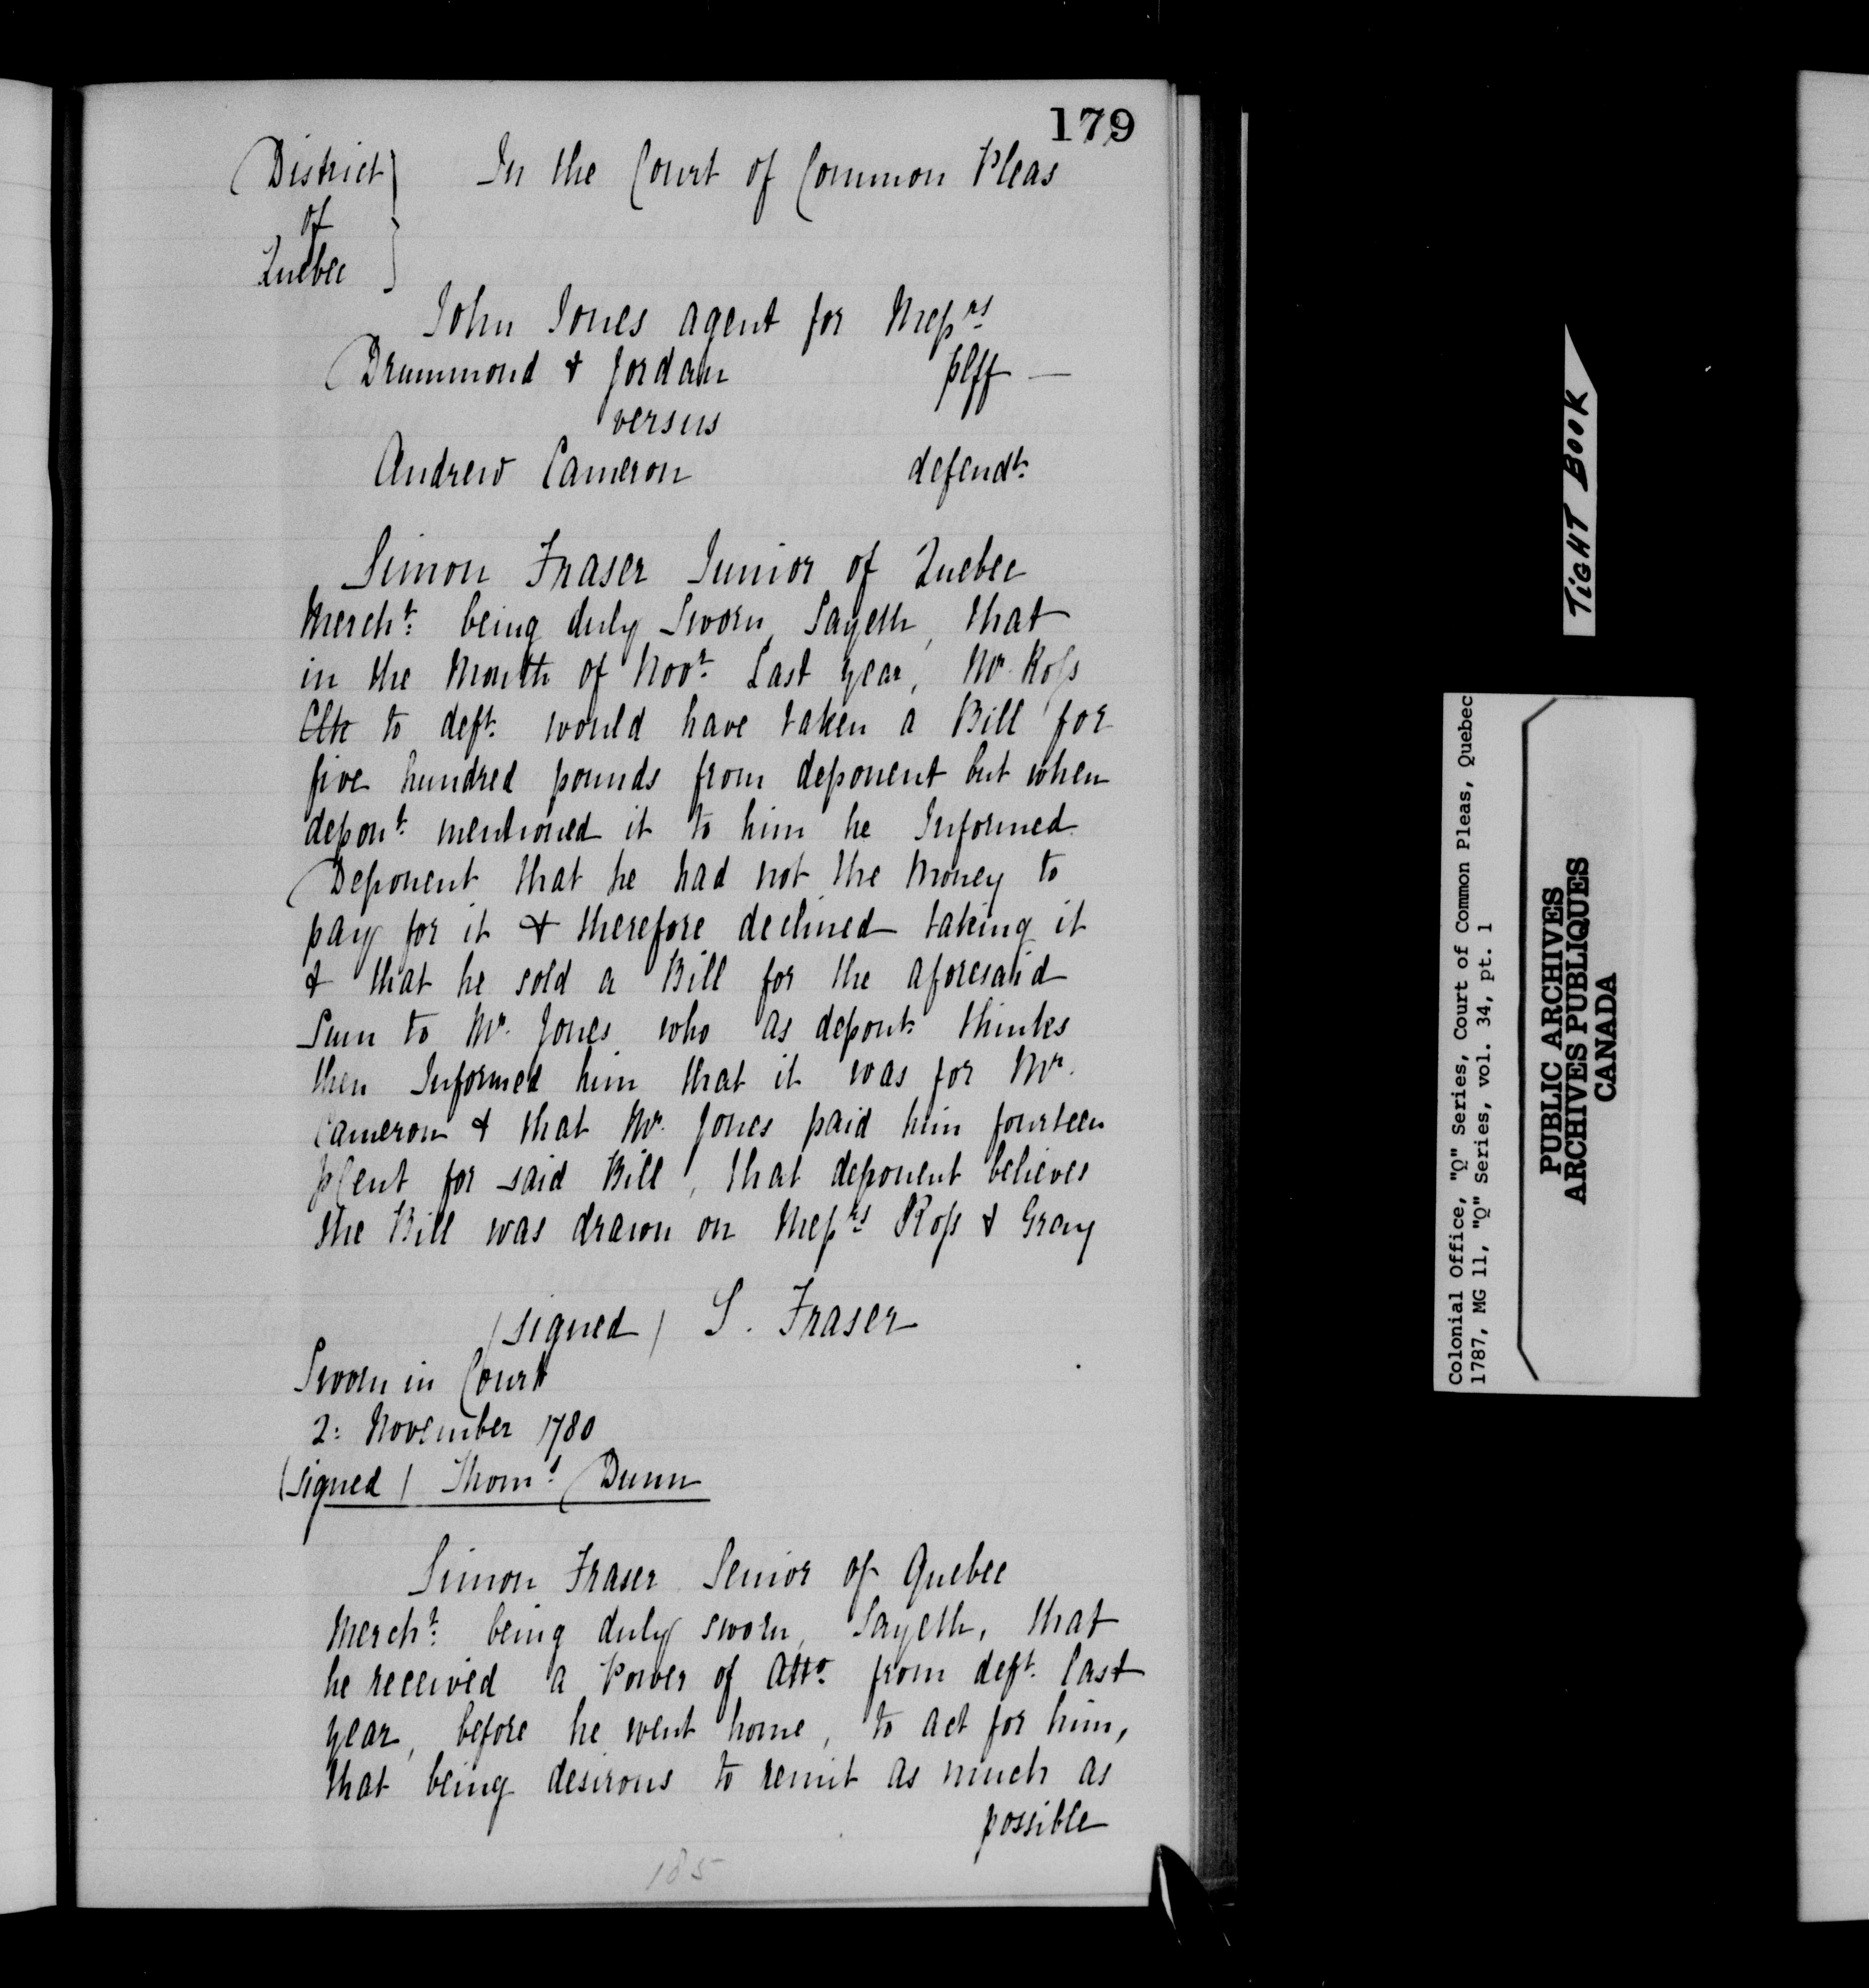 179
District } In the Court of Common Pleas
of
Quebec }
John Jones agent for Messrs
Drummond & Jordan plff —
versus
Andrew Cameron defendt
Simon Fraser Junior of Quebec
Mercht: being duly Sworn, Sayeth, that
in the Month of Novr: Last year, Mr. Ross
Clk to deft. would have taken a Bill for
five hundred pounds from deponent but when
depont: mentioned it to him he Informed
Deponent that he had not the Money to
pay for it & therefore declined taking it
& that he sold a Bill for the aforesaid
Sum to Mr. Jones who as depont: thinks
then Informed him that it was for Mr.
Cameron & that Mr. Jones paid him fourteen
pCent for said Bill, that deponent believes
the Bill was drawn on Messrs Ross & Gray
(signed) S. Fraser
Sworn in Court
2: November 1780
(signed) Thoms: Dunn
Simon Fraser Senior of Quebec
Mercht: being duly sworn, Sayeth, that
he received a Power of Atto. from deft. last
year, before he went home, to act for him,
that being desirous to remit as much as
possible
185
TIGHT BOOK
Colonial Office, "Q" Series, Court of Common Pleas, Quebec
1787, MG 11, "Q" Series, vol. 34, pt. 1
PUBLIC ARCHIVES
ARCHIVES PUBLIQUES
CANADA